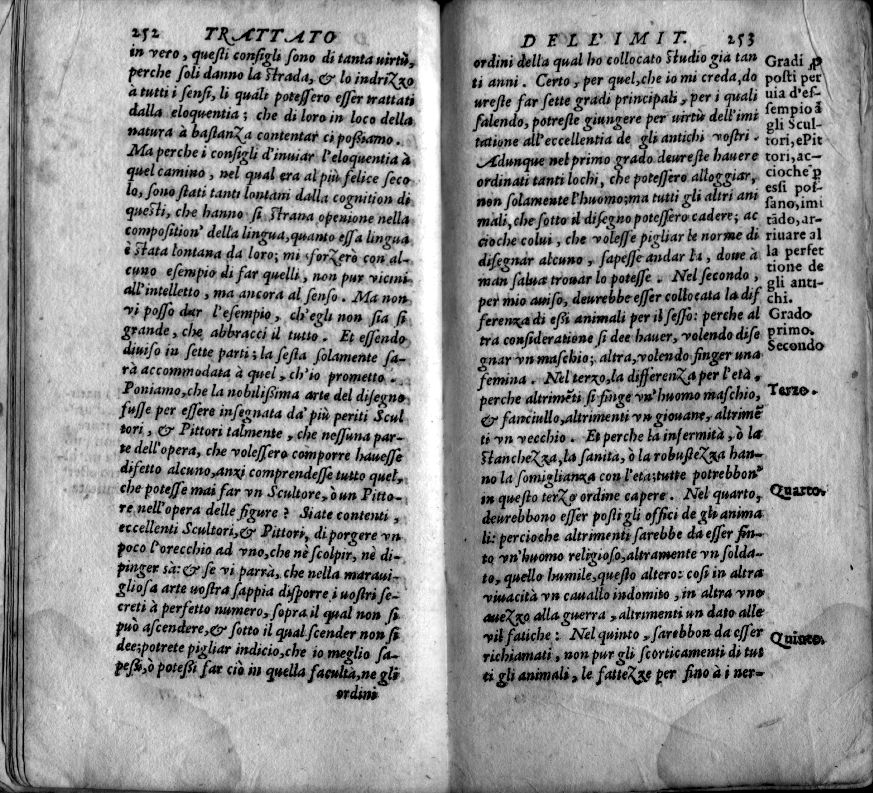 252 TRATTATO
in vero, questi consigli sono di tanta uirtù,
perche soli danno la strada, & lo indrizzo
à tutti i sensi, li quali potessero esser trattati
dalla eloquentia; che di loro in loco della
natura à bastanza contentar ci possiamo.
Ma perche i consigli d'inuiar l'eloquentia à
quel camino, nel qual era al più felice seco
lo, sono stati tanti lontani dalla cognition di
questi, che hanno si strana openione nella
composition' della lingua, quanto essa lingua
è stata lontana da loro; mi sforzerò con al-
cuno esempio di far quelli, non pur vicini
all'intelletto, ma ancora al senso. Ma non
vi posso dar l'esempio, ch'egli non sia si
grande, che abbracci il tutto. Et essendo
diuiso in sette parti; la sesta solamente sa-
rà accommodata à quel, ch'io prometto.
Poniamo, che la nobilißima arte del disegno
fusse per essere insegnata da' più periti Scul
tori, & Pittori talmente, che nessuna par-
te dell'opera, che volessero comporre hauesse
difetto alcuno, anzi comprendesse tutto quel,
che potesse mai far vn Scultore, ò un Pitto-
re nell'opera delle figure? Siate contenti,
eccellenti Scultori, & Pittori, di porgere vn
poco l'orecchio ad vno, che nè scolpir, nè di-
pinger sà: & se vi parrà, che nella maraui-
gliosa arte uostra sappia disporre i uostri se-
creti à perfetto numero, sopra il qual non si
può ascendere, & sotto il qual scender non si
dee; potrete pigliar indicio, che io meglio sa-
peßi, ò poteßi far ciò in quella facultà, ne gli
ordini
DELL'IMIT. 253
ordini della qual ho collocato studio già tan
ti anni. Certo, per quel, che io mi creda, do
ureste far sette gradi principali, per i quali
salendo, potreste giungere per uirtù dell'imi
tatione all'eccellentia de gli antichi vostri.
Adunque nel primo grado deureste hauere
ordinati tanti lochi, che potessero alloggiar,
non solamente l'huomo; ma tutti gli altri ani
mali, che sotto il disegno potessero cadere; ac
cioche colui, che volesse pigliar le norme di
disegnar alcuno, sapesse andar là, doue à
man salua trouar lo potesse. Nel secondo,
per mio auiso, deurebbe esser collocata la dif
ferenza di eßi animali per il sesso: perche al
tra consideratione si dee hauer, volendo dise
gnar vn maschio; altra, volendo finger una
femina. Nel terzo, la differenza per l'età,
perche altrimēti si finge vn'huomo maschio,
& fanciullo, altrimenti vn giouane, altrimē
ti vn vecchio. Et perche la infermità, ò la
stanchezza, la sanità, ò la robustezza han-
no la somiglianza con l'età; tutte potrebbon'
in questo terzo ordine capere. Nel quarto,
deurebbono esser posti gli offici de gli anima
li: percioche altrimenti sarebbe da esser fin-
to vn'huomo religioso, altramente vn solda-
to, quello humile, questo altero: cosi in altra
viuacità vn cauallo indomito, in altra vno
auezzo alla guerra, altrimenti un dato alle
vil fatiche: Nel quinto, sarebbon da esser
richiamati, non pur gli scorticamenti di tut
ti gli animali, le fattezze per fino à i ner-
Gradi ꝓ
posti per
uia d'es-
sempio à
gli Scul-
tori, e Pit
tori, ac-
cioche ꝑ
essi pos-
sano, imi
tādo, ar-
riuare al
la perfet
tione de
gli anti-
chi.
Grado
primo.
Secondo
Terzo.
Quarto.
Quinto.